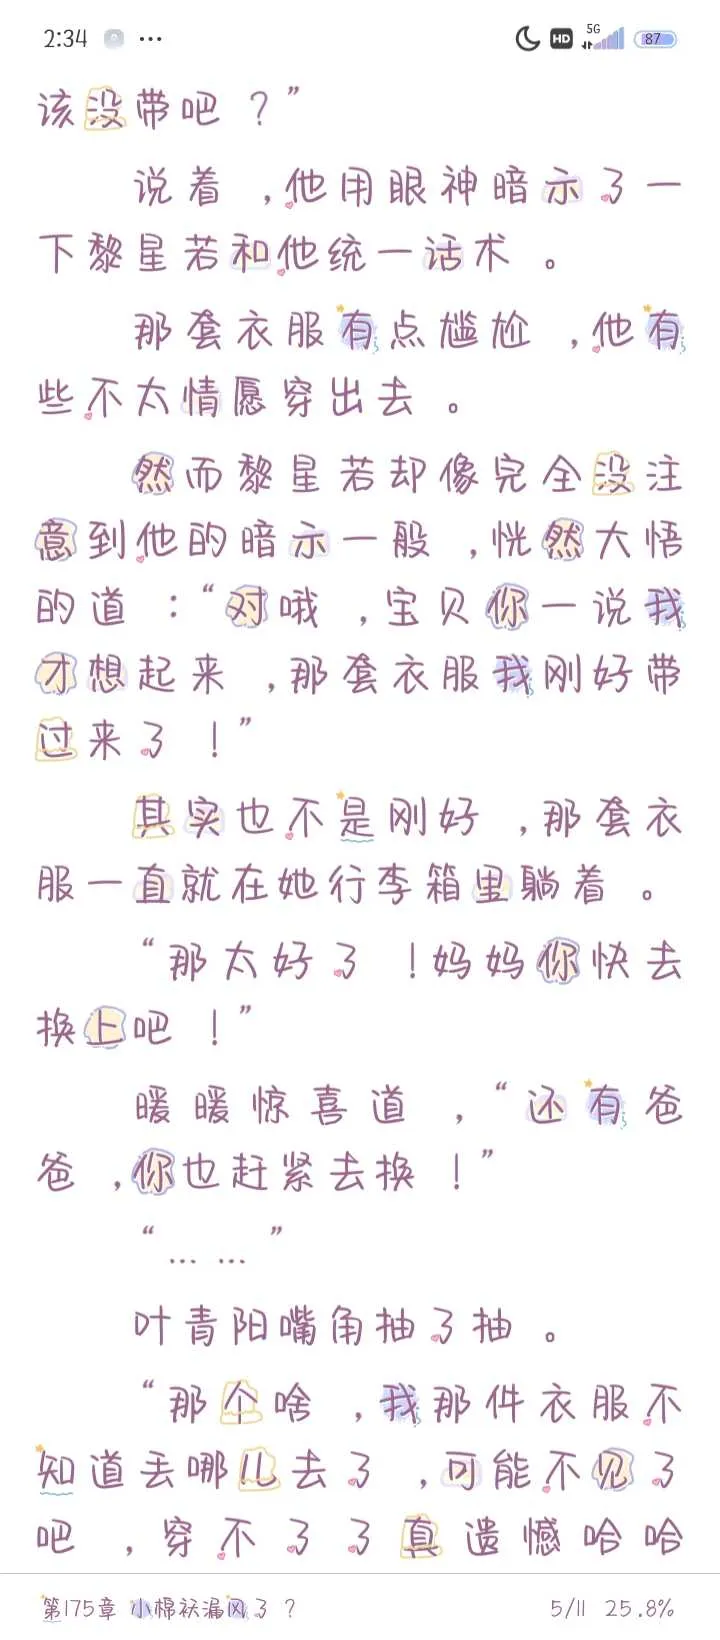 2:34 ... HD 5G 87
该没带吧？”
说着，他用眼神暗示了一
下黎星若和他统一话术。
那套衣服有点尴尬，他有
些不太情愿穿出去。
然而黎星若却像完全没注
意到他的暗示一般，恍然大悟
的道：“对哦，宝贝你一说我
才想起来，那套衣服我刚好带
过来了！”
其实也不是刚好，那套衣
服一直就在她行李箱里躺着。
“那太好了！妈妈你快去
换上吧！”
暖暖惊喜道，“还有爸
爸，你也赶紧去换！”
“……”
叶青阳嘴角抽了抽。
“那个啥，我那件衣服不
知道丢哪儿去了，可能不见了
吧，穿不了了真遗憾哈哈
第175章 小棉袄漏风了？ 5/11 25.8%